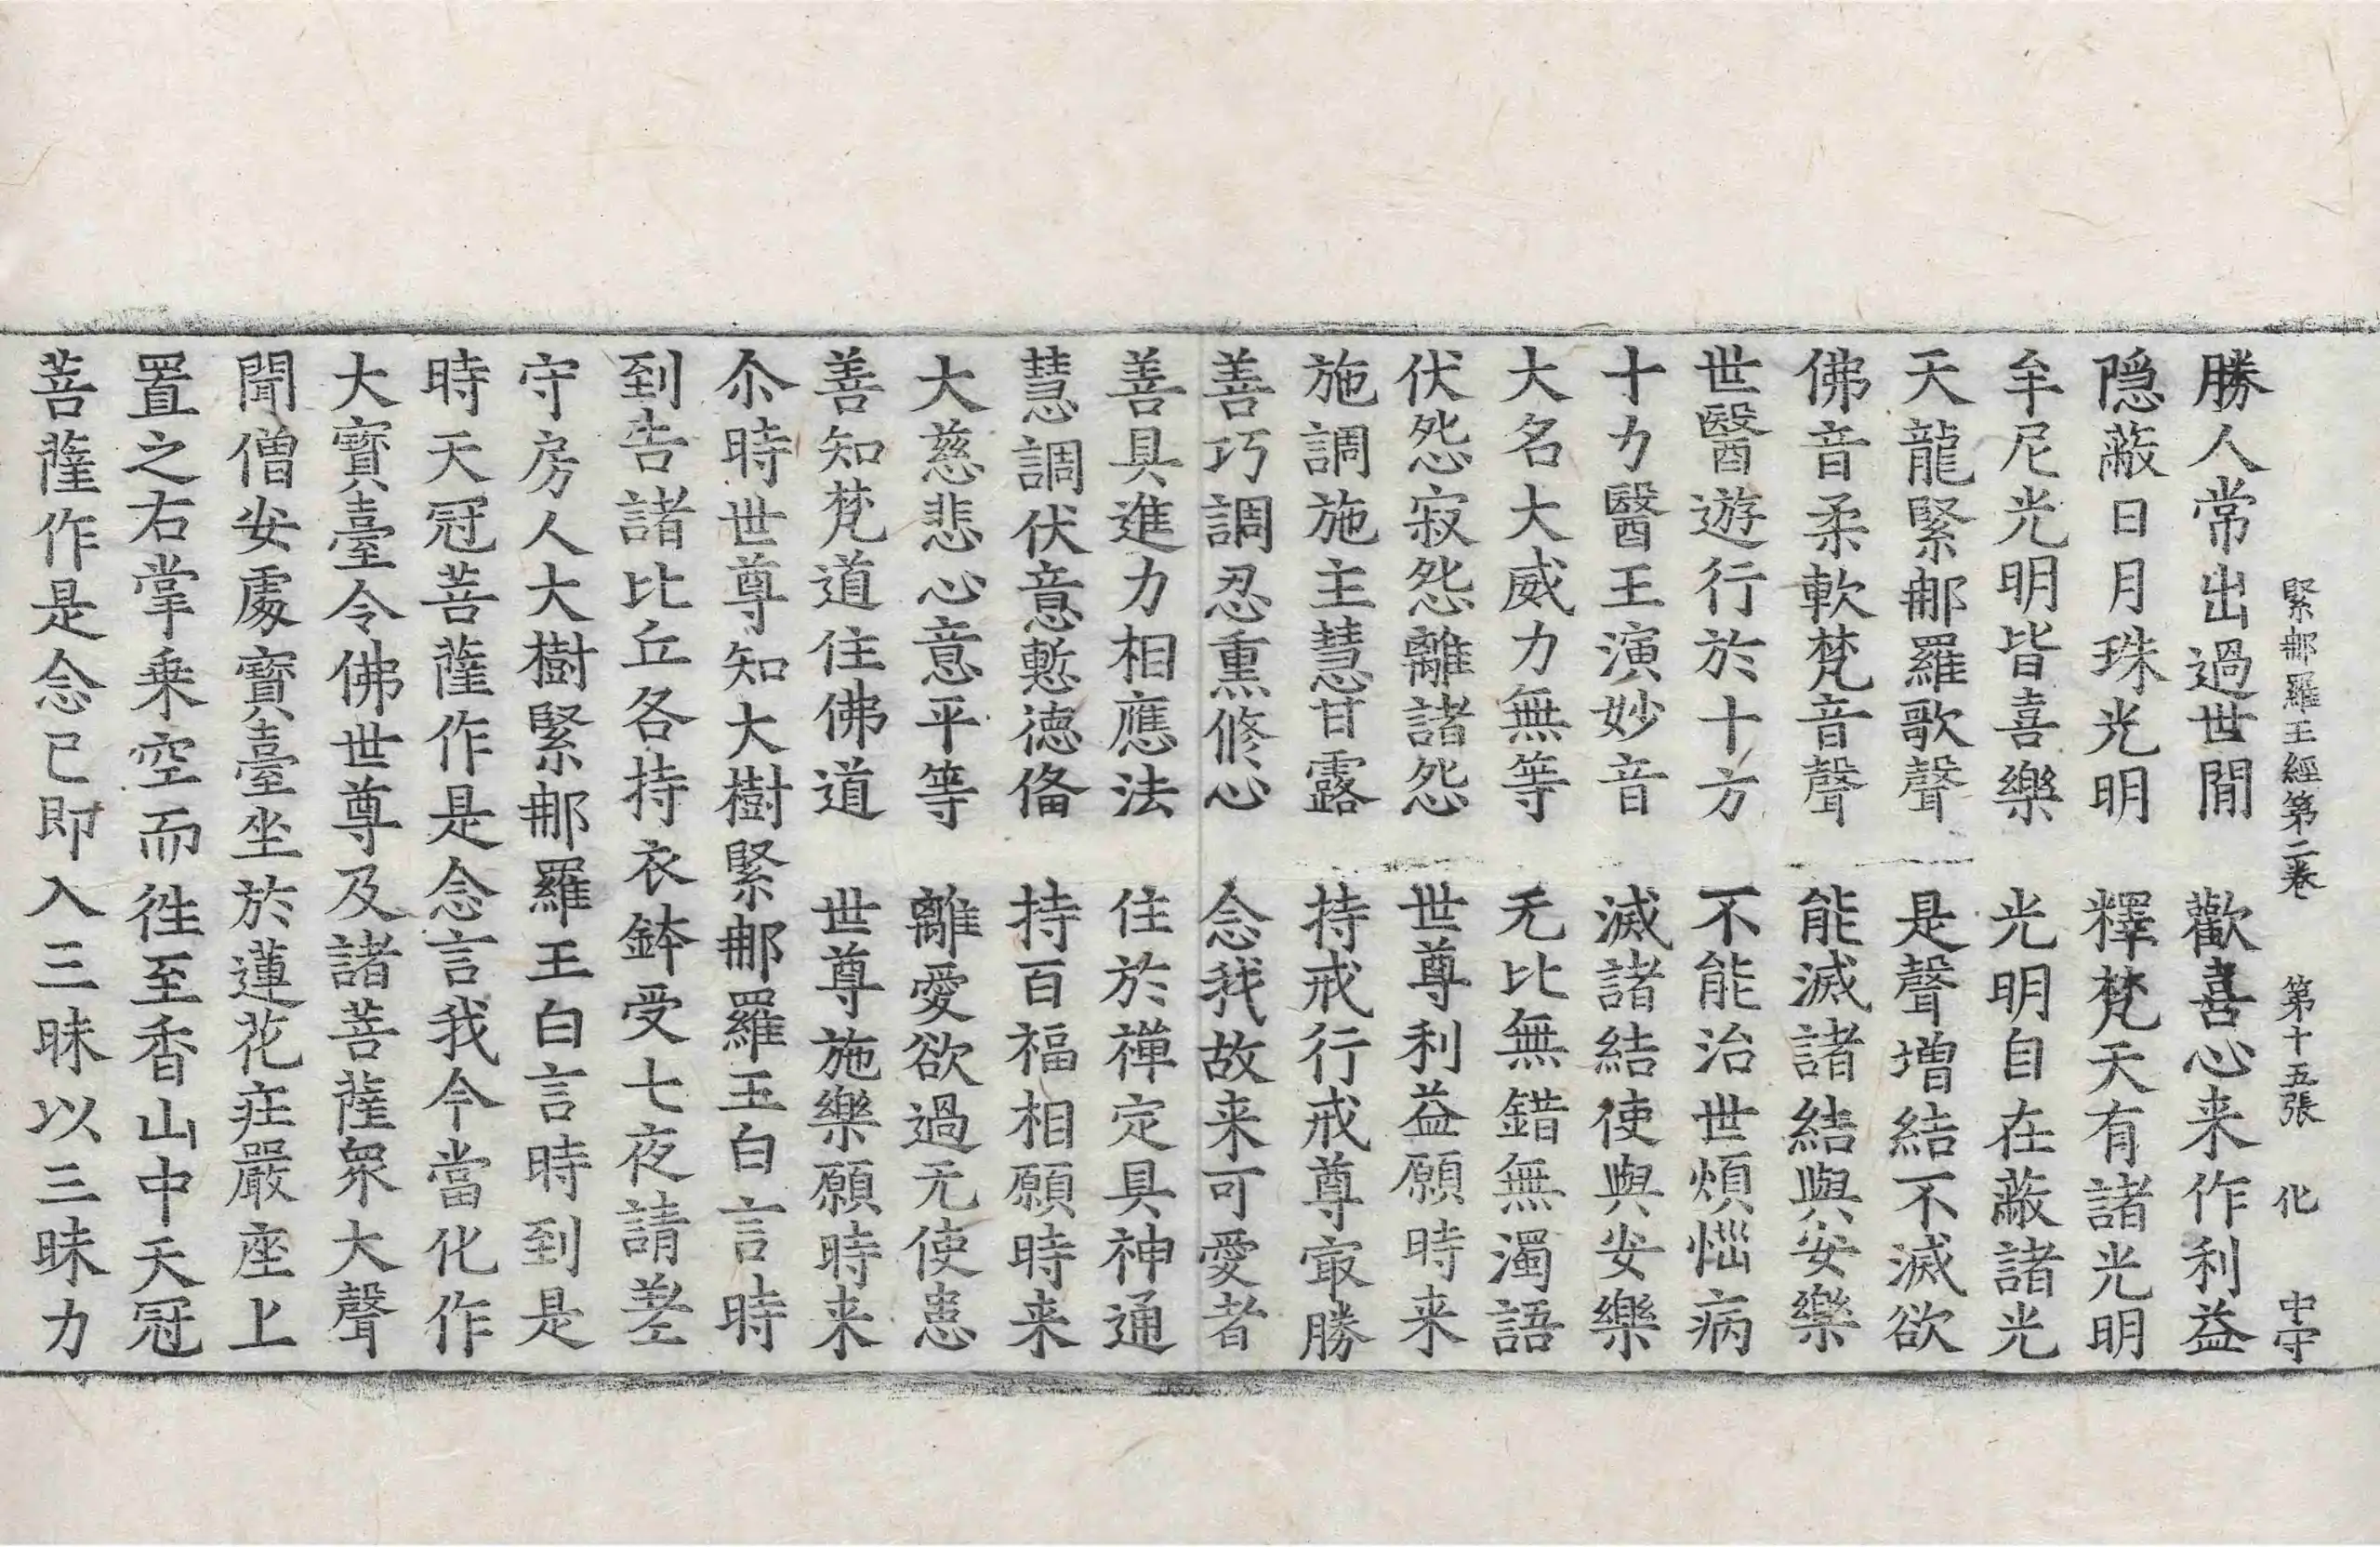 緊那羅王經第二卷　第十五張　化　中守
勝人常出過世間　歡喜心来作利益
隱蔽日月珠光明　釋梵天有諸光明
牟尼光明皆喜樂　光明自在蔽諸光
天龍緊那羅歌聲　是聲增結不滅欲
佛音柔軟梵音聲　能滅諸結與安樂
世醫遊行於十方　不能治世煩惱病
十力醫王演妙音　滅諸結使與安樂
大名大威力無等　无比無錯無濁語
伏怨寂怨離諸怨　世尊利益願時来
施調施主慧甘露　持戒行戒尊㝡勝
善巧調忍熏修心　念我故来可愛者
善具進力相應法　住於禪定具神通
慧調伏意慙德俻　持百福相願時来
大慈悲心意平等　離愛欲過无使恚
善知梵道住佛道　世尊施樂願時来
尒時世尊知大樹緊那羅王白言時
到告諸比丘各持衣鉢受七夜請差
守房人大樹緊那羅王白言時到是
時天冠菩薩作是念言我今當化作
大寶臺令佛世尊及諸菩薩衆大聲
聞僧安處寶臺坐於蓮花庄嚴座上
置之右掌乗空而徃至香山中天冠
菩薩作是念已即入三昧以三昧力